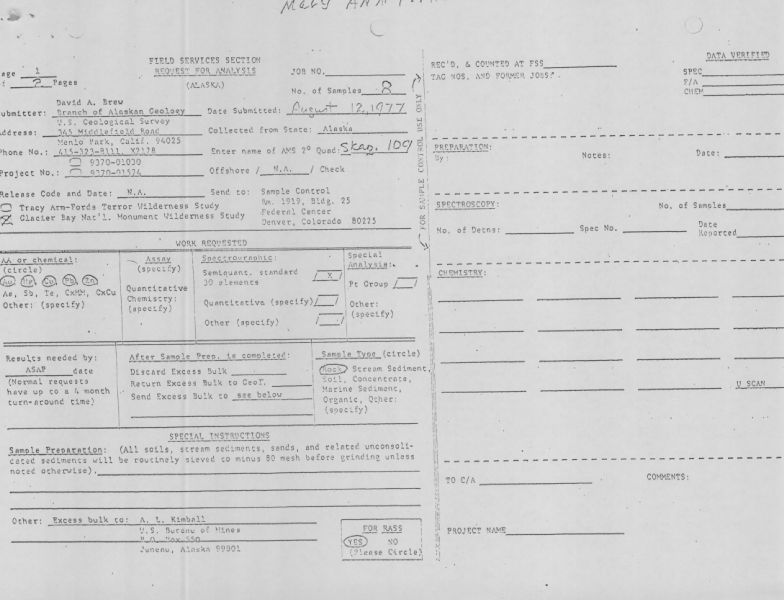 MARY ANN
FIELD SERVICES SECTION
REQUEST FOR ANALYSIS
(ALASKA)
age 1
2 Pages
JOB NO.
No. of Samples 8
ubmitter: David A. Brew
Branch of Alaskan Geology
Date Submitted: August 12, 1977
U.S. Geological Survey
ddress: 345 Middlefield Road
Collected from State: Alaska
Menlo Park, Calif. 94025
hone No.: 415-323-8111, X2178
Enter name of AMS 2° Quad: Skag. 109
9370-01030
Project No.: 9370-01574
Offshore / N.A. / Check
Release Code and Date: N.A.
Send to: Sample Control
Rm. 1919, Bldg. 25
Federal Center
Denver, Colorado 80225
Tracy Arm-Fords Terror Wilderness Study
X Glacier Bay Nat'l. Monument Wilderness Study
WORK REQUESTED
AA or chemical:
(circle)
Au Hg Cu Pb Zn
As, Sb, Te, CxHM, CxCu
Other: (specify)
Assay
(specify)
Quantitative
Chemistry:
(specify)
Spectrographic:
Semiquant. standard
30 elements / X /
Quantitative (specify) / /
Other (specify) / /
Special
Analysis:
Pt Group / /
Other:
(specify)
Results needed by:
ASAP date
(Normal requests
have up to a 4 month
turn-around time)
After Sample Prep. is completed:
Discard Excess Bulk
Return Excess Bulk to GeoT.
Send Excess Bulk to see below
Sample Type (circle)
Rock Stream Sediment,
Soil, Concentrate,
Marine Sediment,
Organic, Other:
(specify)
SPECIAL INSTRUCTIONS
Sample Preparation: (All soils, stream sediments, sands, and related unconsoli-
dated sediments will be routinely sieved to minus 80 mesh before grinding unless
noted otherwise).
Other: Excess bulk to: A. L. Kimball
U.S. Bureau of Mines
P.O. Box 550
Juneau, Alaska 99801
FOR RASS
YES NO
(Please Circle)
FOR SAMPLE CONTROL USE ONLY
REC'D, & COUNTED AT FSS
TAG NOS. AND FORMER JOBS?
DATA VERIFIED
SPEC
P/A
CHEM
PREPARATION:
By:
Notes:
Date:
SPECTROSCOPY:
No. of Samples
No. of Detns:
Spec No.
Date
Reported
CHEMISTRY:
U SCAN
TO C/A
COMMENTS:
PROJECT NAME